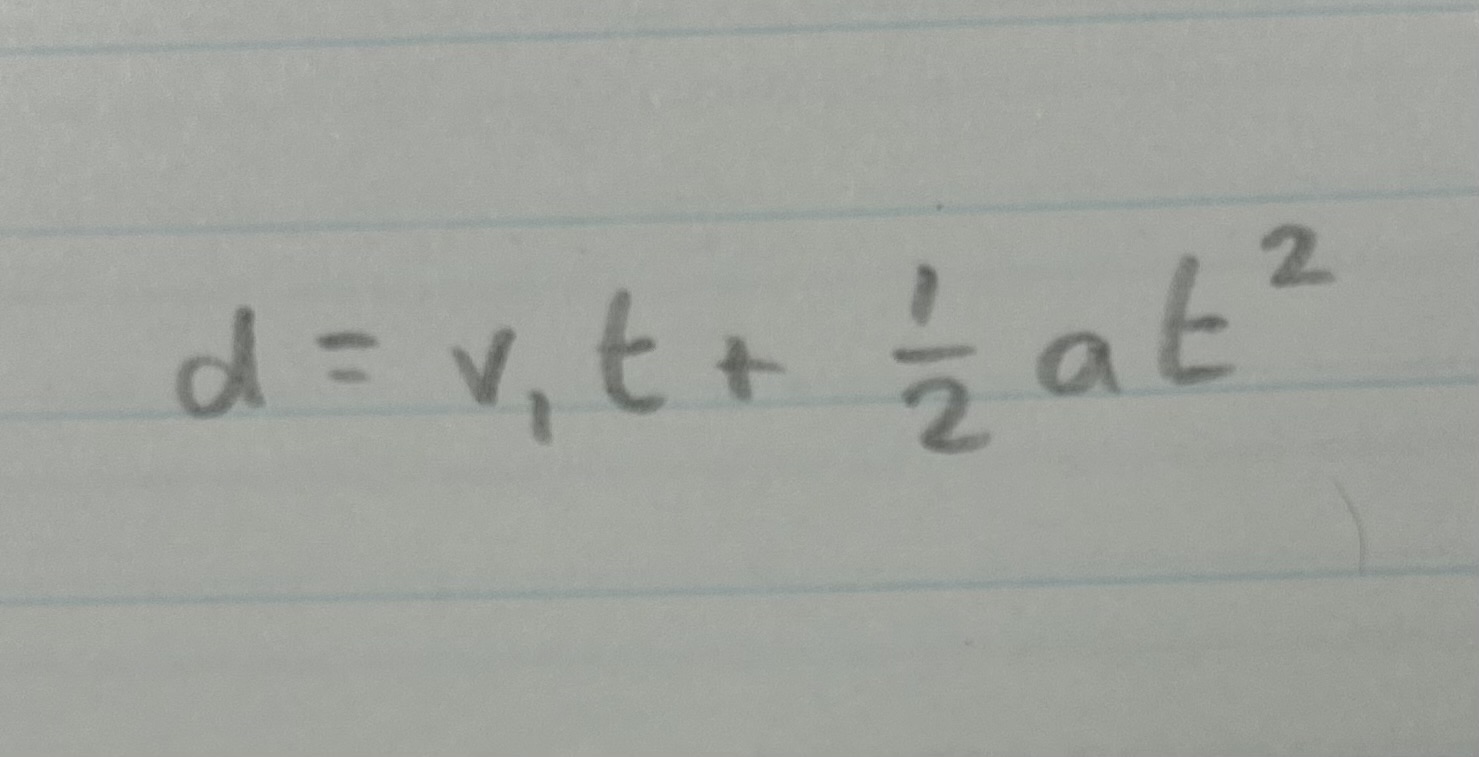 d = v₁t + ½at²